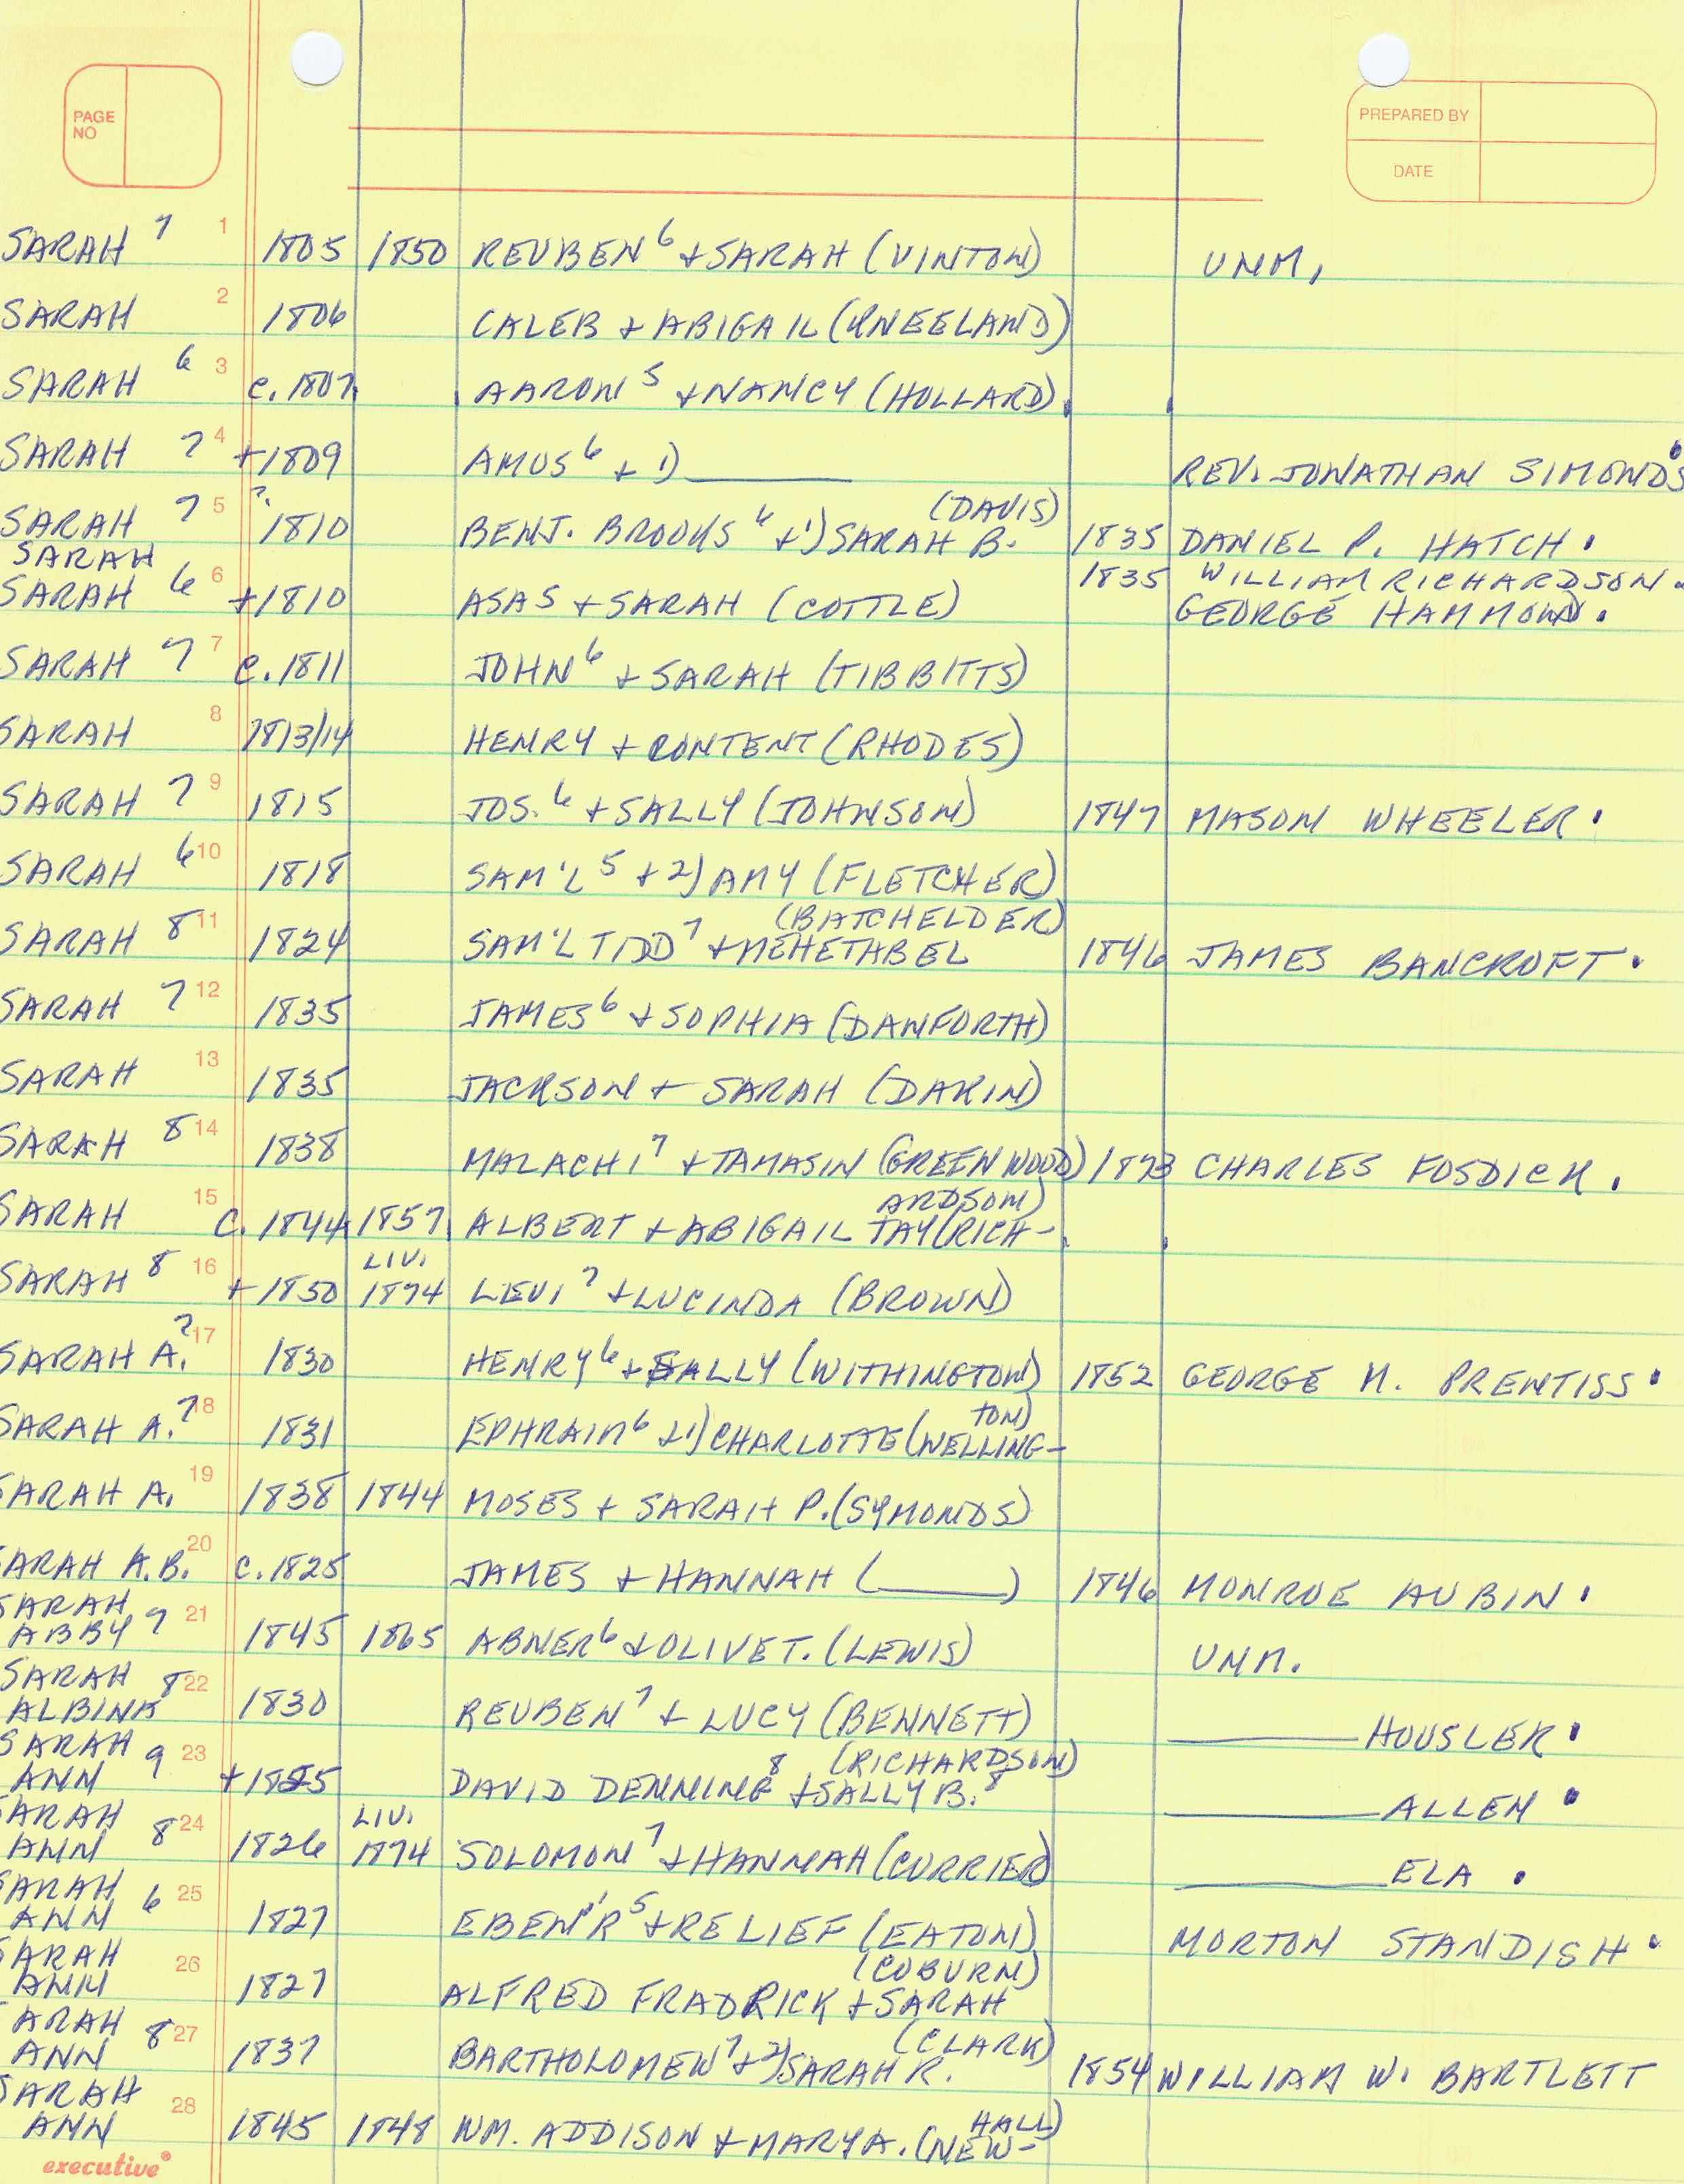 PAGE NO
PREPARED BY
DATE
SARAH 7 1 1805 1850 REUBEN 6 + SARAH (VINTON) UNM.
SARAH 2 1806 CALEB + ABIGAIL (KNEELAND)
SARAH 6 3 c. 1807 AARON 5 + NANCY (HOLLARD)
SARAH 7 4 +1809 AMOS 6 + 1) ________ REV. JONATHAN SIMONDS 6
(DAVIS)
SARAH 7 5 ?. 1810 BENJ. BROOKS 6 + 1) SARAH B. 1835 DANIEL P. HATCH.
SARAH 1835 WILLIAM RICHARDSON.
SARAH 6 6 +1810 ASA 5 + SARAH (COTTLE) GEORGE HAMMOND.
SARAH 7 7 c. 1811 JOHN 6 + SARAH (TIBBITTS)
SARAH 8 1813/14 HENRY + CONTENT (RHODES)
SARAH 7 9 1815 JOS. 6 + SALLY (JOHNSON) 1847 MASON WHEELER.
SARAH 6 10 1818 SAM'L 5 + 2) AMY (FLETCHER)
(BATCHELDER)
SARAH 8 11 1824 SAM'L TIDD 7 + MEHETABEL 1846 JAMES BANCROFT.
SARAH 7 12 1835 JAMES 6 + SOPHIA (DANFORTH)
SARAH 13 1835 JACKSON + SARAH (DAKIN)
SARAH 8 14 1838 MALACHI 7 + TAMASIN (GREENWOOD) 1873 CHARLES FOSDICK.
ARDSON)
SARAH 15 C. 1844 1857 ALBERT + ABIGAIL TAY (RICH-
LIV.
SARAH 8 16 +1850 1874 LEVI 7 + LUCINDA (BROWN)
SARAH A. 7 17 1830 HENRY 6 + SALLY (WITHINGTON) 1852 GEORGE H. PRENTISS.
TON)
SARAH A. 7 18 1831 EPHRAIM 6 + 1) CHARLOTTE (WELLING-
SARAH A. 19 1838 1844 MOSES + SARAH P. (SYMONDS)
SARAH A.B. 20 c. 1825 JAMES + HANNAH (________) 1846 MONROE AUBIN.
SARAH
ABBY 7 21 1845 1865 ABNER 6 + OLIVE T. (LEWIS) UNM.
SARAH
ALBINA 8 22 1830 REUBEN 7 + LUCY (BENNETT) ________ HOUSLER.
SARAH (RICHARDSON)
ANN 9 23 + DAVID DENNING 8 + SALLY B. 8 ________ ALLEN.
SARAH LIV.
ANN 8 24 1826 1874 SOLOMON 7 + HANNAH (CURRIER) ________ ELA.
SARAH
ANN 6 25 1827 EBEN'R 5 + RELIEF (EATON) MORTON STANDISH.
SARAH (COBURN)
ANN 26 1827 ALFRED FRADRICK + SARAH
SARAH (CLARK)
ANN 8 27 1837 BARTHOLOMEW 7 + 2) SARAH R. 1854 WILLIAM W. BARTLETT
SARAH HALL)
ANN 28 1845 1848 WM. ADDISON + MARY A. (NEW-
executive®